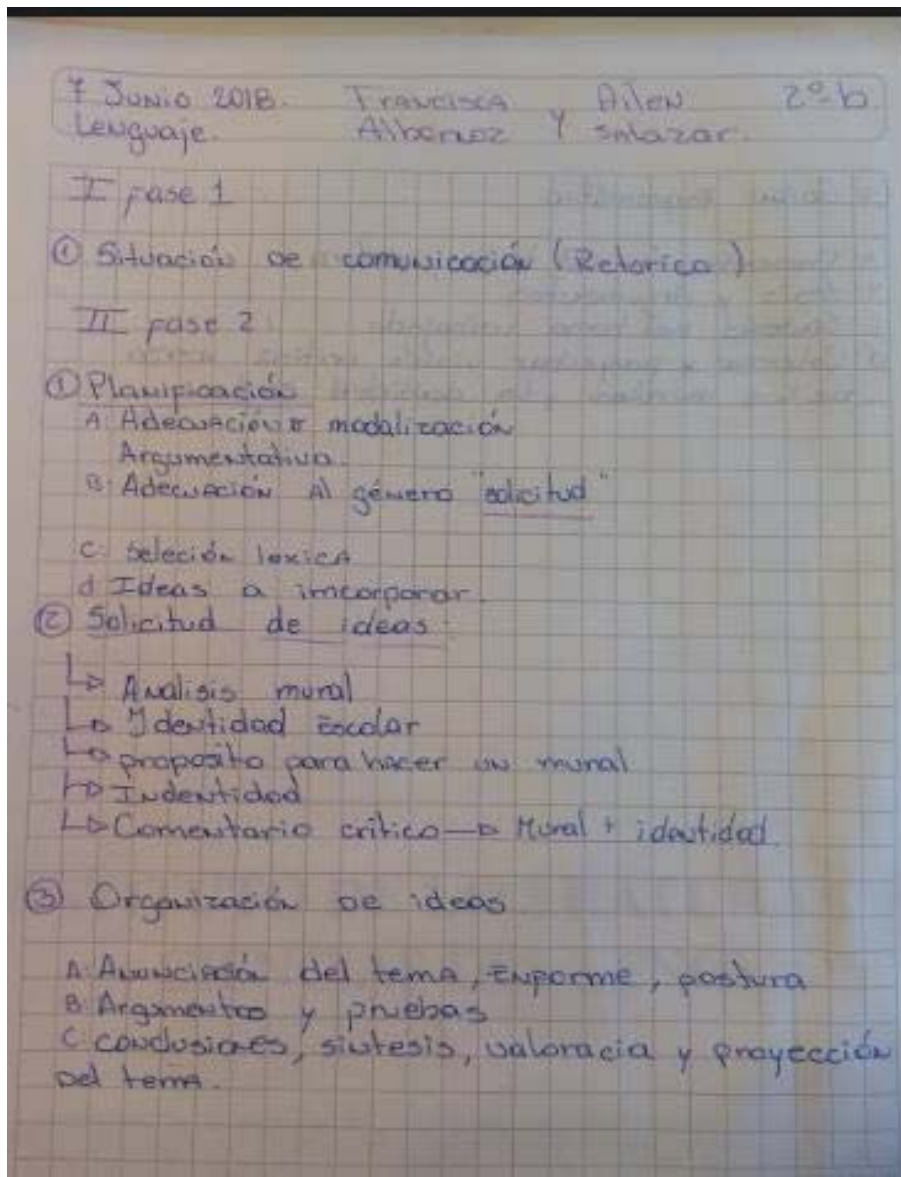 7 Junio 2018. Francisca y Ailen 2º-b
Lenguaje. Albornoz Salazar.
I fase 1
① Situación de comunicación (Retorica)
II fase 2
① Planificación
A: Adecuación modalización
Argumentativa.
B: Adecuación Al género "solicitud"
C: Seleción lexica
d Ideas a imcorporar
② Solicitud de ideas
↳ Analisis mural
↳ Identidad Escolar
↳ proposito para hacer un mural
↳ Indentidad
↳ Comentario crítico → Mural + identidad.
③ Organización de ideas
A: Anunciación del tema, Enforme, postura
B: Argumentos y pruebas
C conclusiones, sintesis, valoracia y proyección
Del tema.